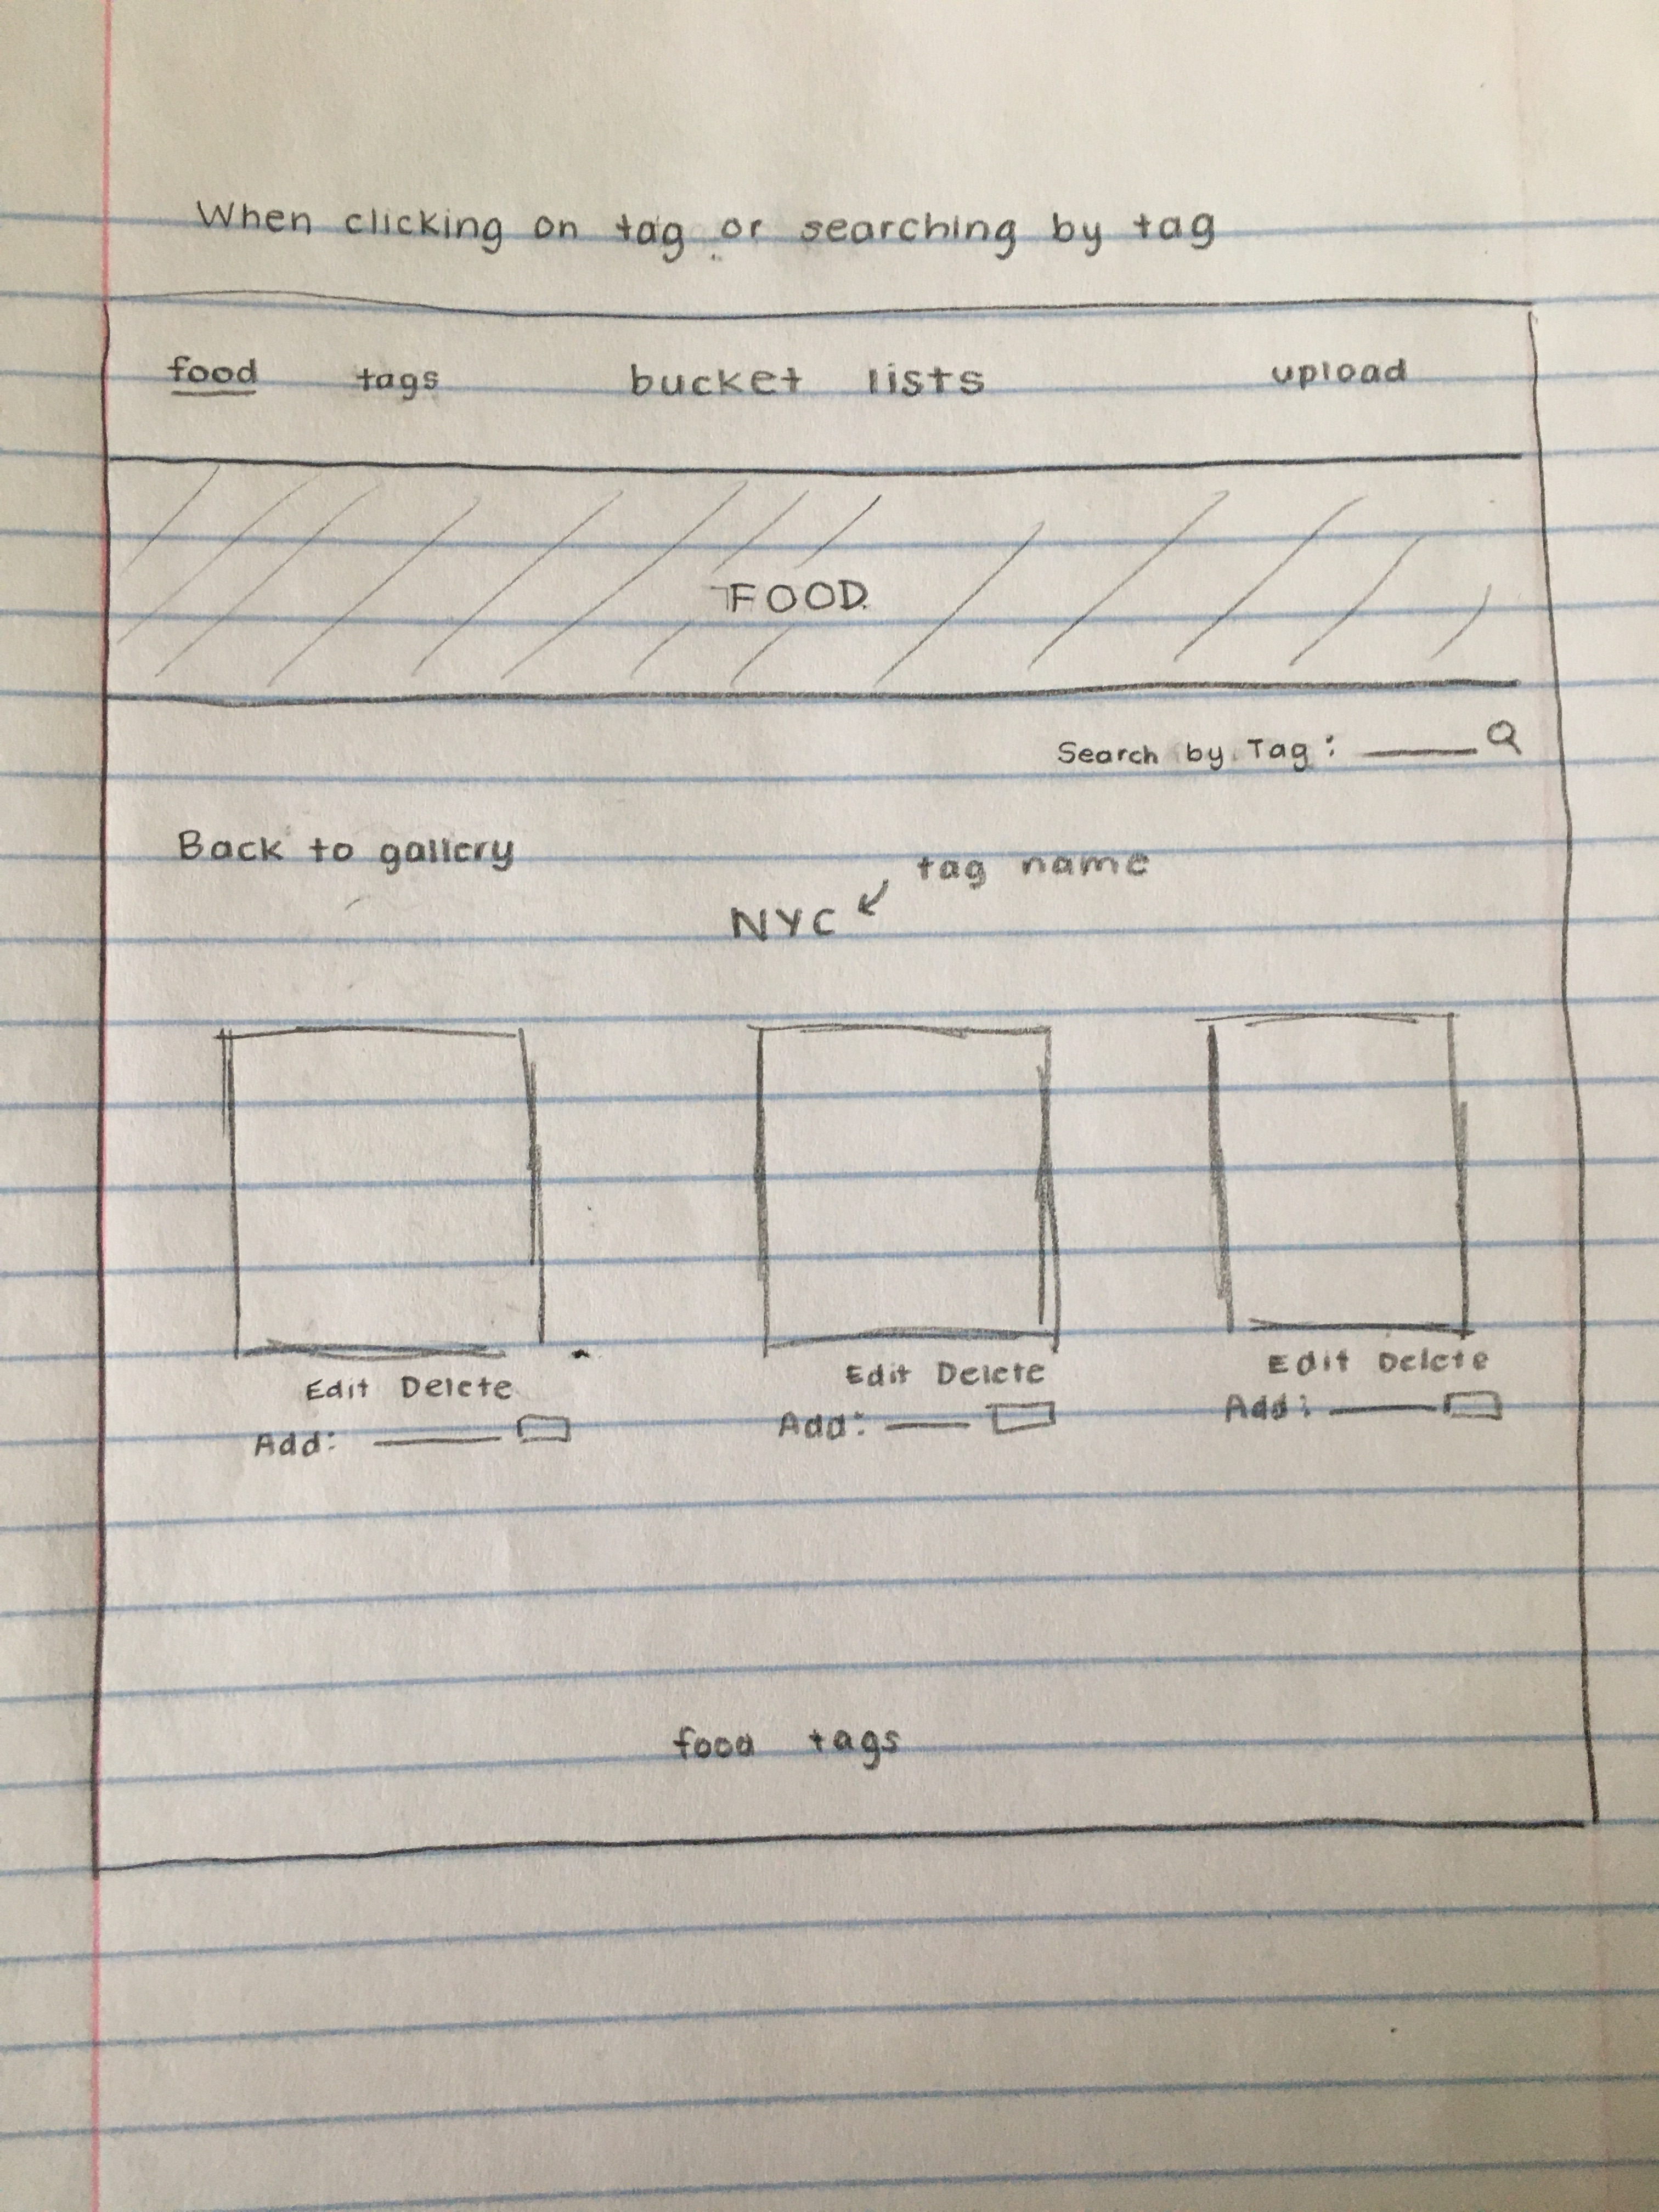 When clicking on tag or searching by tag
food tags bucket lists upload
FOOD
Search by Tag:
Back to gallery
tag name
NYC
Edit Delete Edit Delete Edit Delete
Add: Add: Add:
food tags